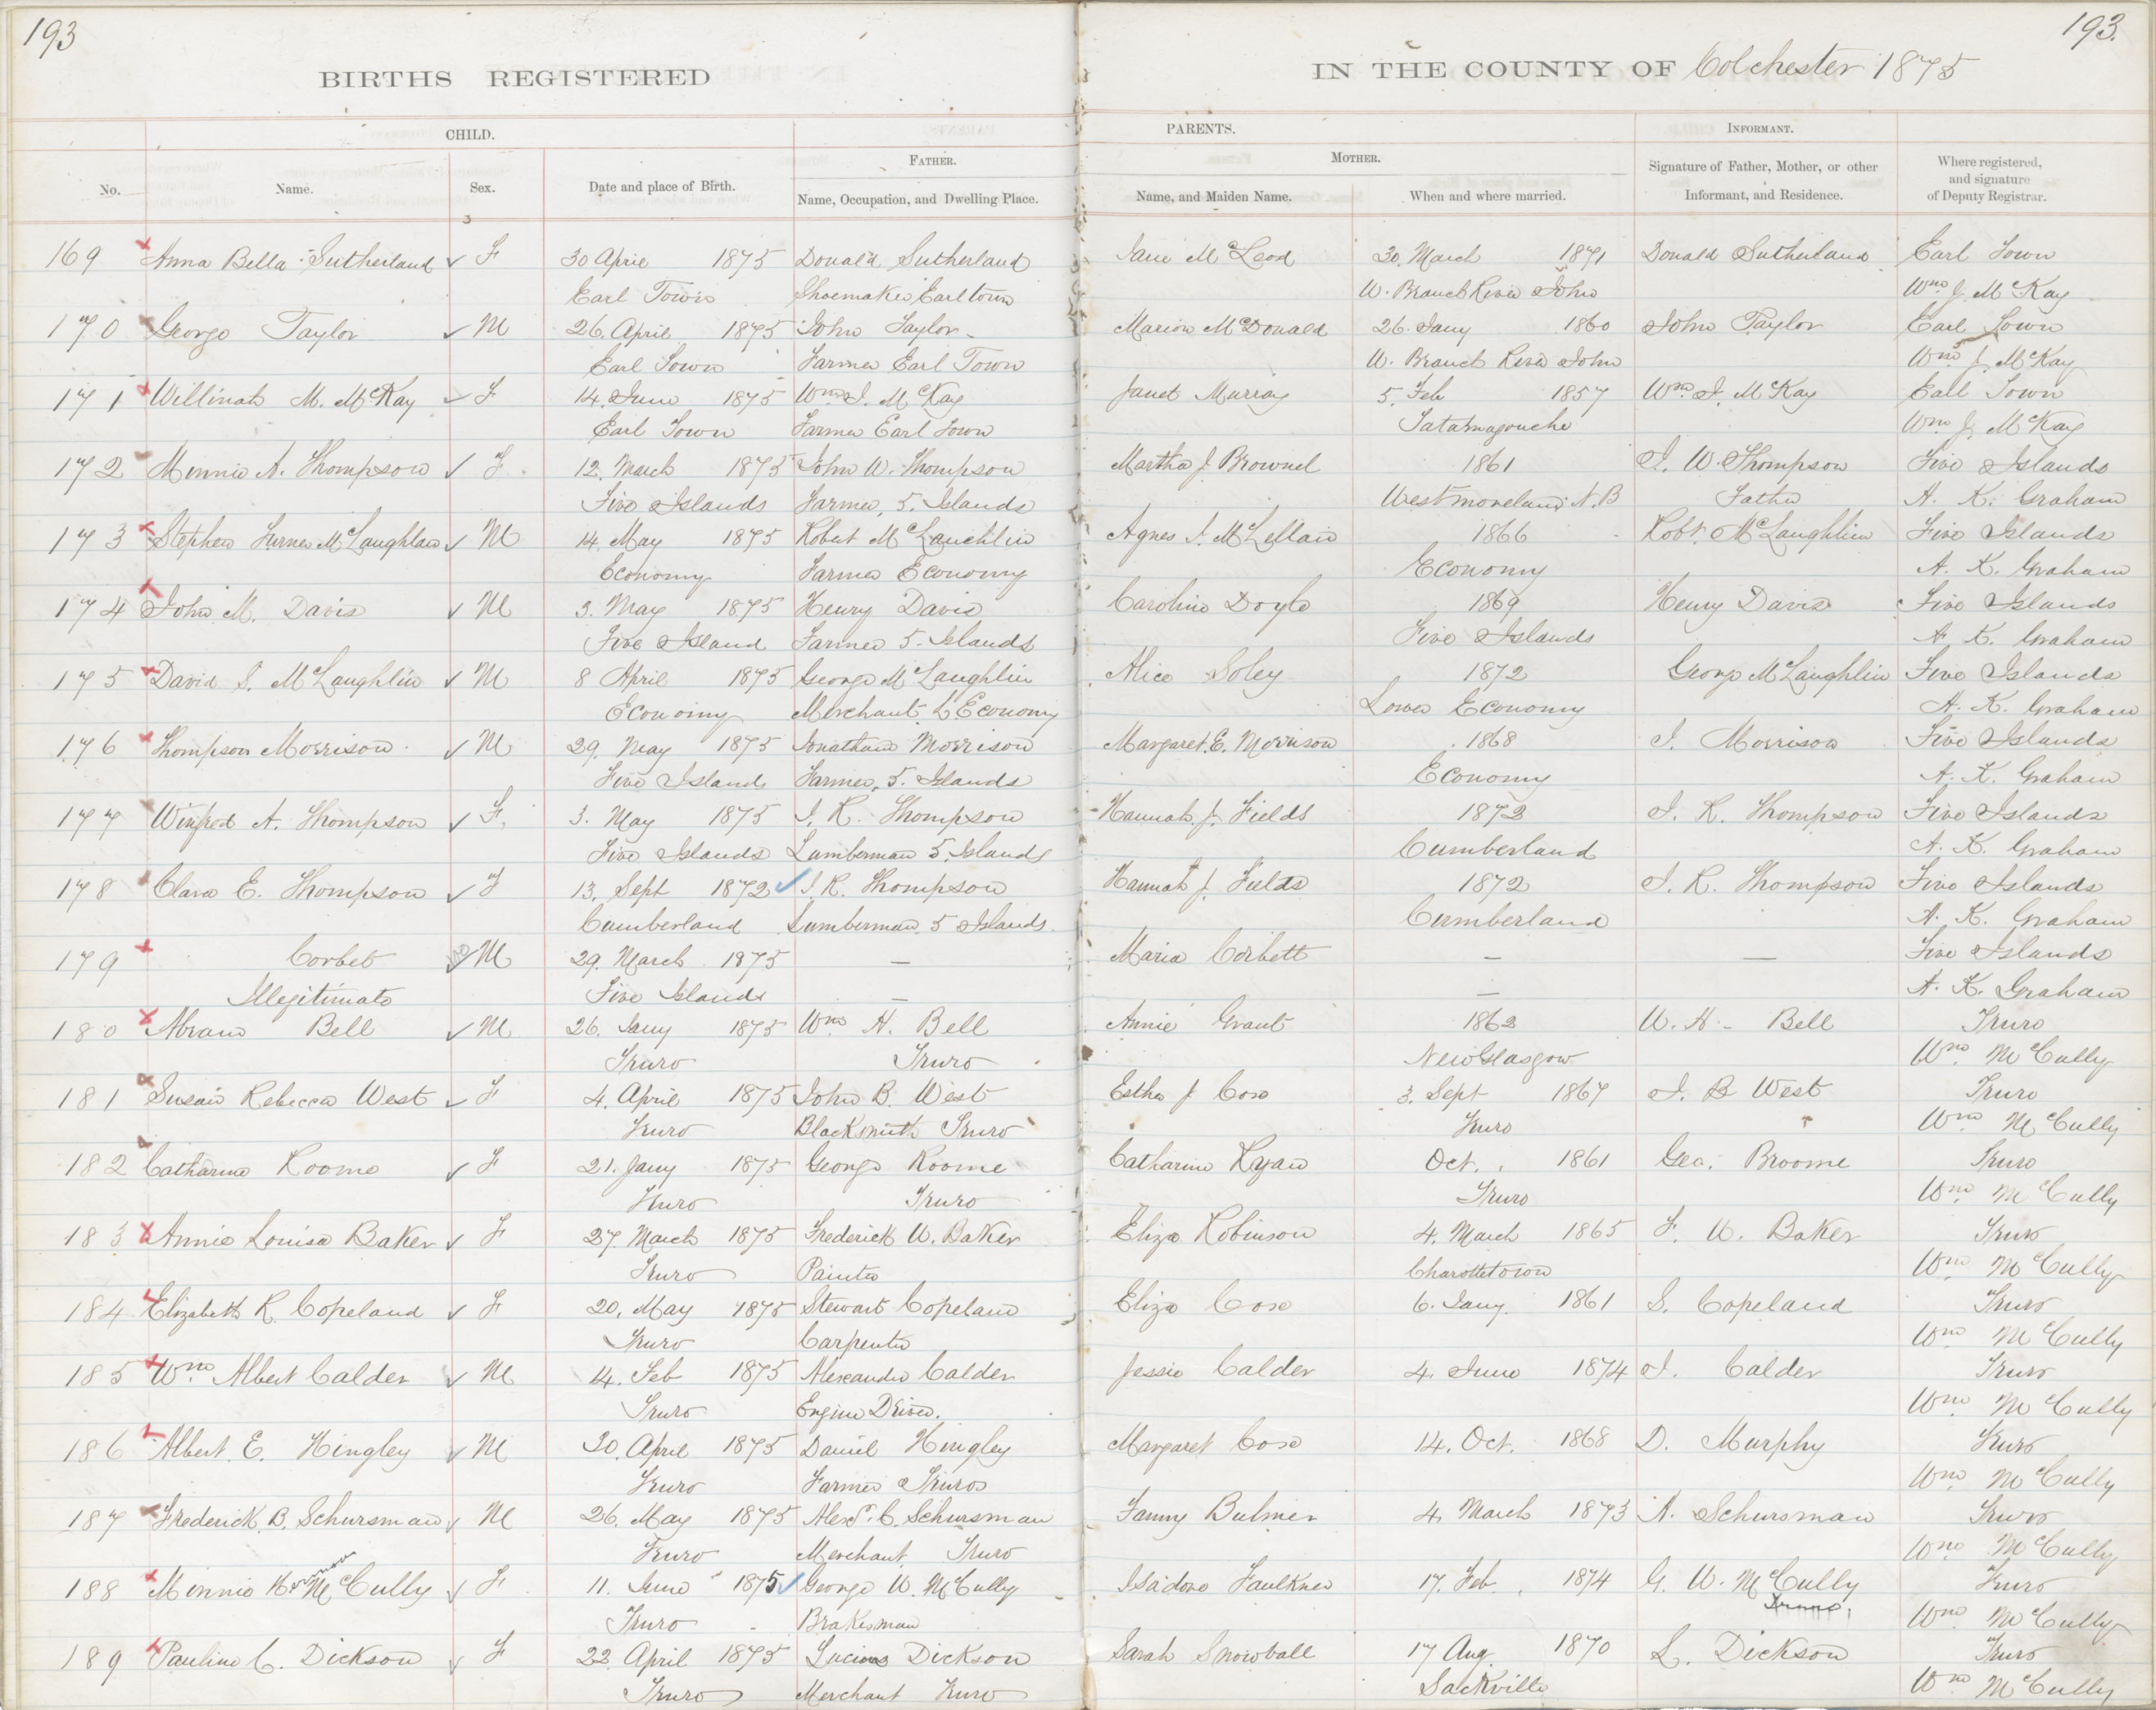 193
193.
BIRTHS REGISTERED
IN THE COUNTY OF Colchester 1875
CHILD.
PARENTS.
INFORMANT.
FATHER.
MOTHER.
No.
Name.
Sex.
Date and place of Birth.
Name, Occupation, and Dwelling Place.
Name, and Maiden Name.
When and where married.
Signature of Father, Mother, or other
Informant, and Residence.
Where registered,
and signature
of Deputy Registrar.
3
169 Anna Bella Sutherland F 30 April 1875 Donald Sutherland Jane McLeod 30. March 1871 Donald Sutherland Earl Town
Earl Town Shoemaker Earltown W. Branch River John Wm J. McKay
170 George Taylor M 26. April 1875 John Taylor Marion McDonald 26. Jany 1860 John Taylor Earl Town
Earl Town Farmer Earl Town W. Branch River John Wm J. McKay
171 Willinah M. McKay F 14. June 1875 Wm J. McKay Janet Murray 5. Feb 1857 Wm J. McKay Earl Town
Earl Town Farmer Earl Town Tatamagouche Wm J. McKay
172 Minnie A. Thompson F 12. March 1875 John W. Thompson Martha J. Brownel 1861 J. W. Thompson Five Islands
Five Islands Farmer, 5. Islands Westmoreland N.B Father A. K. Graham
173 Stephen Turner McLaughlan M 14. May 1875 Robert McLauchlin Agnes J. McLellan 1866 Robt. McLaughlin Five Islands
Economy Farmer Economy Economy A. K. Graham
174 John M. Davis M 3. May 1875 Henry Davis Caroline Doyle 1869 Henry Davis Five Islands
Five Island Farmer 5. Islands Five Islands A. K. Graham
175 David S. McLaughlin M 8 April 1875 George McLaughlin Alice Soley 1872 George McLaughlin Five Islands
Economy Merchant L Economy Lower Economy A. K. Graham
176 Thompson Morrison M 29. May 1875 Jonathan Morrison Margaret E. Morrison 1868 J. Morrison Five Islands
Five Islands Farmer, 5. Islands Economy A. K. Graham
177 Winfred A. Thompson F. 3. May 1875 J. R. Thompson Hannah J. Fields 1872 J. R. Thompson Five Islands
Five Islands Lumberman 5. Islands Cumberland A. K. Graham
178 Clara E. Thompson F 13. Sept 1872 J. R. Thompson Hannah J. Fields 1872 J. R. Thompson Five Islands
Cumberland Lumberman 5 Islands Cumberland A. K. Graham
179 Corbet M 29. March 1875 — Maria Corbett — — Five Islands
Illegitimate Five Islands — — A. K. Graham
180 Abram Bell M 26. Jany 1875 Wm H. Bell Annie Grant 1862 W. H. Bell Truro
Truro Truro New Glasgow Wm McCully
181 Susan Rebecca West F 4. April 1875 John B. West Esther J Coxe 3. Sept 1867 J. B West Truro
Truro Blacksmith Truro Truro " Wm McCully
182 Catharine Roome F 21. Jany 1875 George Roome Catharine Ryan Oct. 1861 Geo. Broome Truro
Truro Truro Truro Wm McCully
183 Annie Louisa Baker F 27. March 1875 Frederick W. Baker Eliza Robinson 4. March 1865 F. W. Baker Truro
Truro Painter Charottetown Wm McCully
184 Elizabeth R. Copeland F 20. May 1875 Stewart Copeland Eliza Coxe 6. Jany. 1861 S. Copeland Truro
Truro Carpenter Wm McCully
185 Wm Albert Calder M 14. Feb 1875 Alexander Calder Jessie Calder 4. June 1874 J. Calder Truro
Truro Engine Driver. Wm McCully
186 Albert. E. Hingley M 30. April 1875 Daniel Hingley Margaret Coxe 14. Oct. 1868 D. Murphy Truro
Truro Farmer Truro Wm McCully
187 Frederick. B. Schursman M 26. May 1875 Alexr. C. Schursman Fanny Bulmer 4. March 1873 A. Schursman Truro
Truro Merchant Truro Wm McCully
188 Minnie McCully F 11. June 1875 George W. McCully Isadore Faulkner 17. Feb. 1874 G. W. McCully Truro
Truro Brakesman Wm McCully
189 Pauline C. Dickson F 22. April 1875 Lucious Dickson Sarah Snowball 17 Aug. 1870 L. Dickson Truro
Truro Merchant Truro Sackville Wm McCully